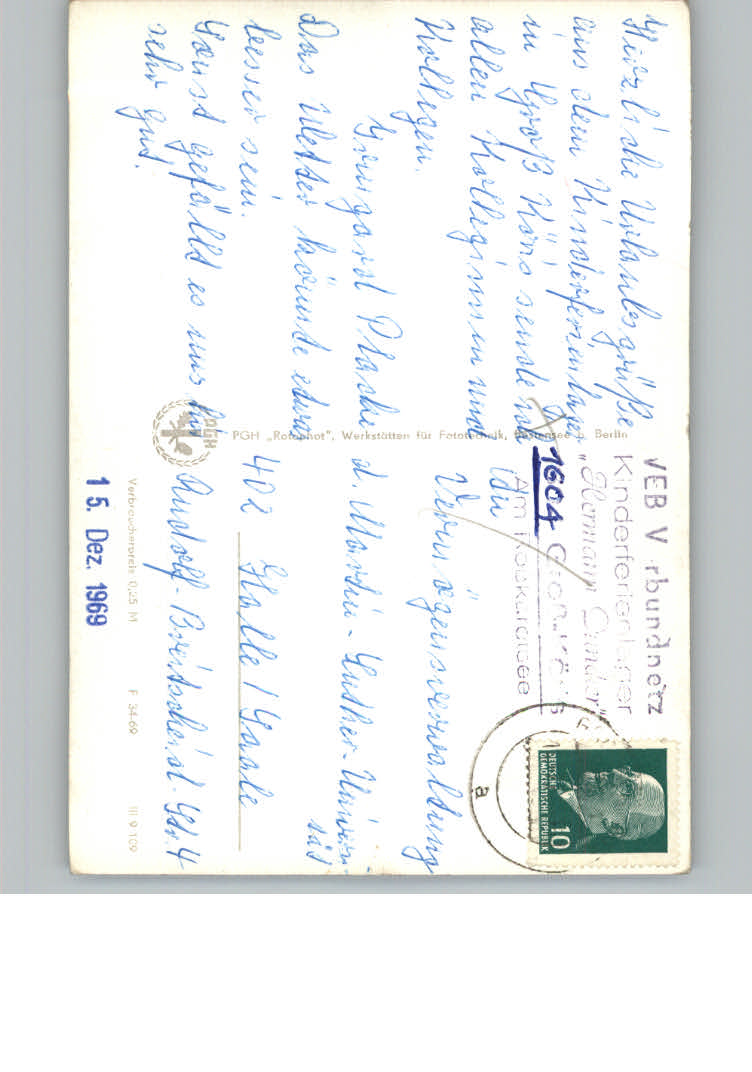 Herzliche Urlaubsgrüße
aus dem Kinderferienlager
in Groß Köris sendet
allen Kolleginnen und
Kollegen.
Irmgard
Das Wetter könnte etwas
besser sein.
Sonst gefällt es uns hier
sehr gut.
PGH „Rotophot", Werkstätten für Fototechnik, Bestensee b. Berlin
PGH
VEB Verbundnetz
Kinderferienlager
„Hermann Duncker"
1604 Groß-Köris
Am
An die
Vermögensverwaltung
d. Martin-Luther-Univer-
sität
402 Halle / Saale
Rudolf-Breitscheid-Str. 4
Verbraucherpreis 0,25 M F 34-69 III 9 109
15. Dez. 1969
DEUTSCHE
DEMOKRATISCHE REPUBLIK
10
a